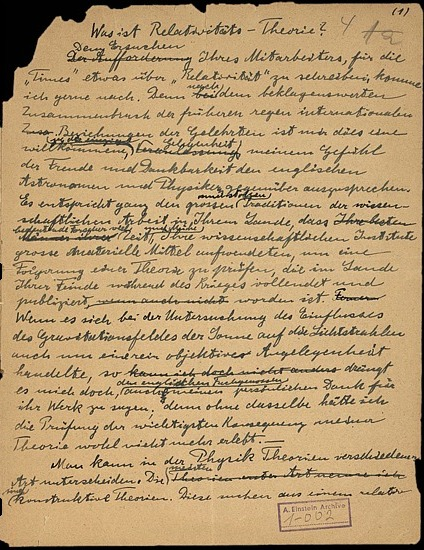 (1)
Was ist Relativitäts-Theorie?
Dem Ersuchen
Der Aufforderung Ihres Mitarbeiters, für die
„Times" etwas über „Relativität" zu schreiben, komme
ich gerne nach. Denn nach dem beklagenswerten
Zusammenbruch der früheren regen internationalen
Beziehungen der Gelehrten ist mir dies eine
willkommene Gelegenheit, meinem Gefühl
der Freude und Dankbarkeit den englischen
Astronomen und Physikern gegenüber auszusprechen.
Es entspricht ganz den grossen und stolzen Traditionen der wissen-
schaftlichen Arbeit in Ihrem Lande, dass
bedeutende Forscher viel Zeit, Ihre wissenschaftlichen Institute
grosse materielle Mittel aufwendeten, um eine
Folgerung einer Theorie zu prüfen, die im Lande
Ihrer Feinde während des Krieges vollendet und
publiziert worden ist.
Wenn es sich bei der Untersuchung des Einflusses
des Gravitationsfeldes der Sonne auf die Lichtstrahlen
auch um eine rein objektive Angelegenheit
handelte, so kann ich doch nicht anders drängt
es mich doch, den englischen Fachgenossen auch meinen persönlichen Dank für
ihr Werk zu sagen, denn ohne dasselbe hätte ich
die Prüfung der wichtigsten Konsequenz meiner
Theorie wohl nicht mehr erlebt.—
Man kann in der Physik Theorien verschiedener
Art unterscheiden. Die meisten Theorien
sind konstruktive Theorien. Diese suchen aus einem relativ
A. Einstein Archive
1-002